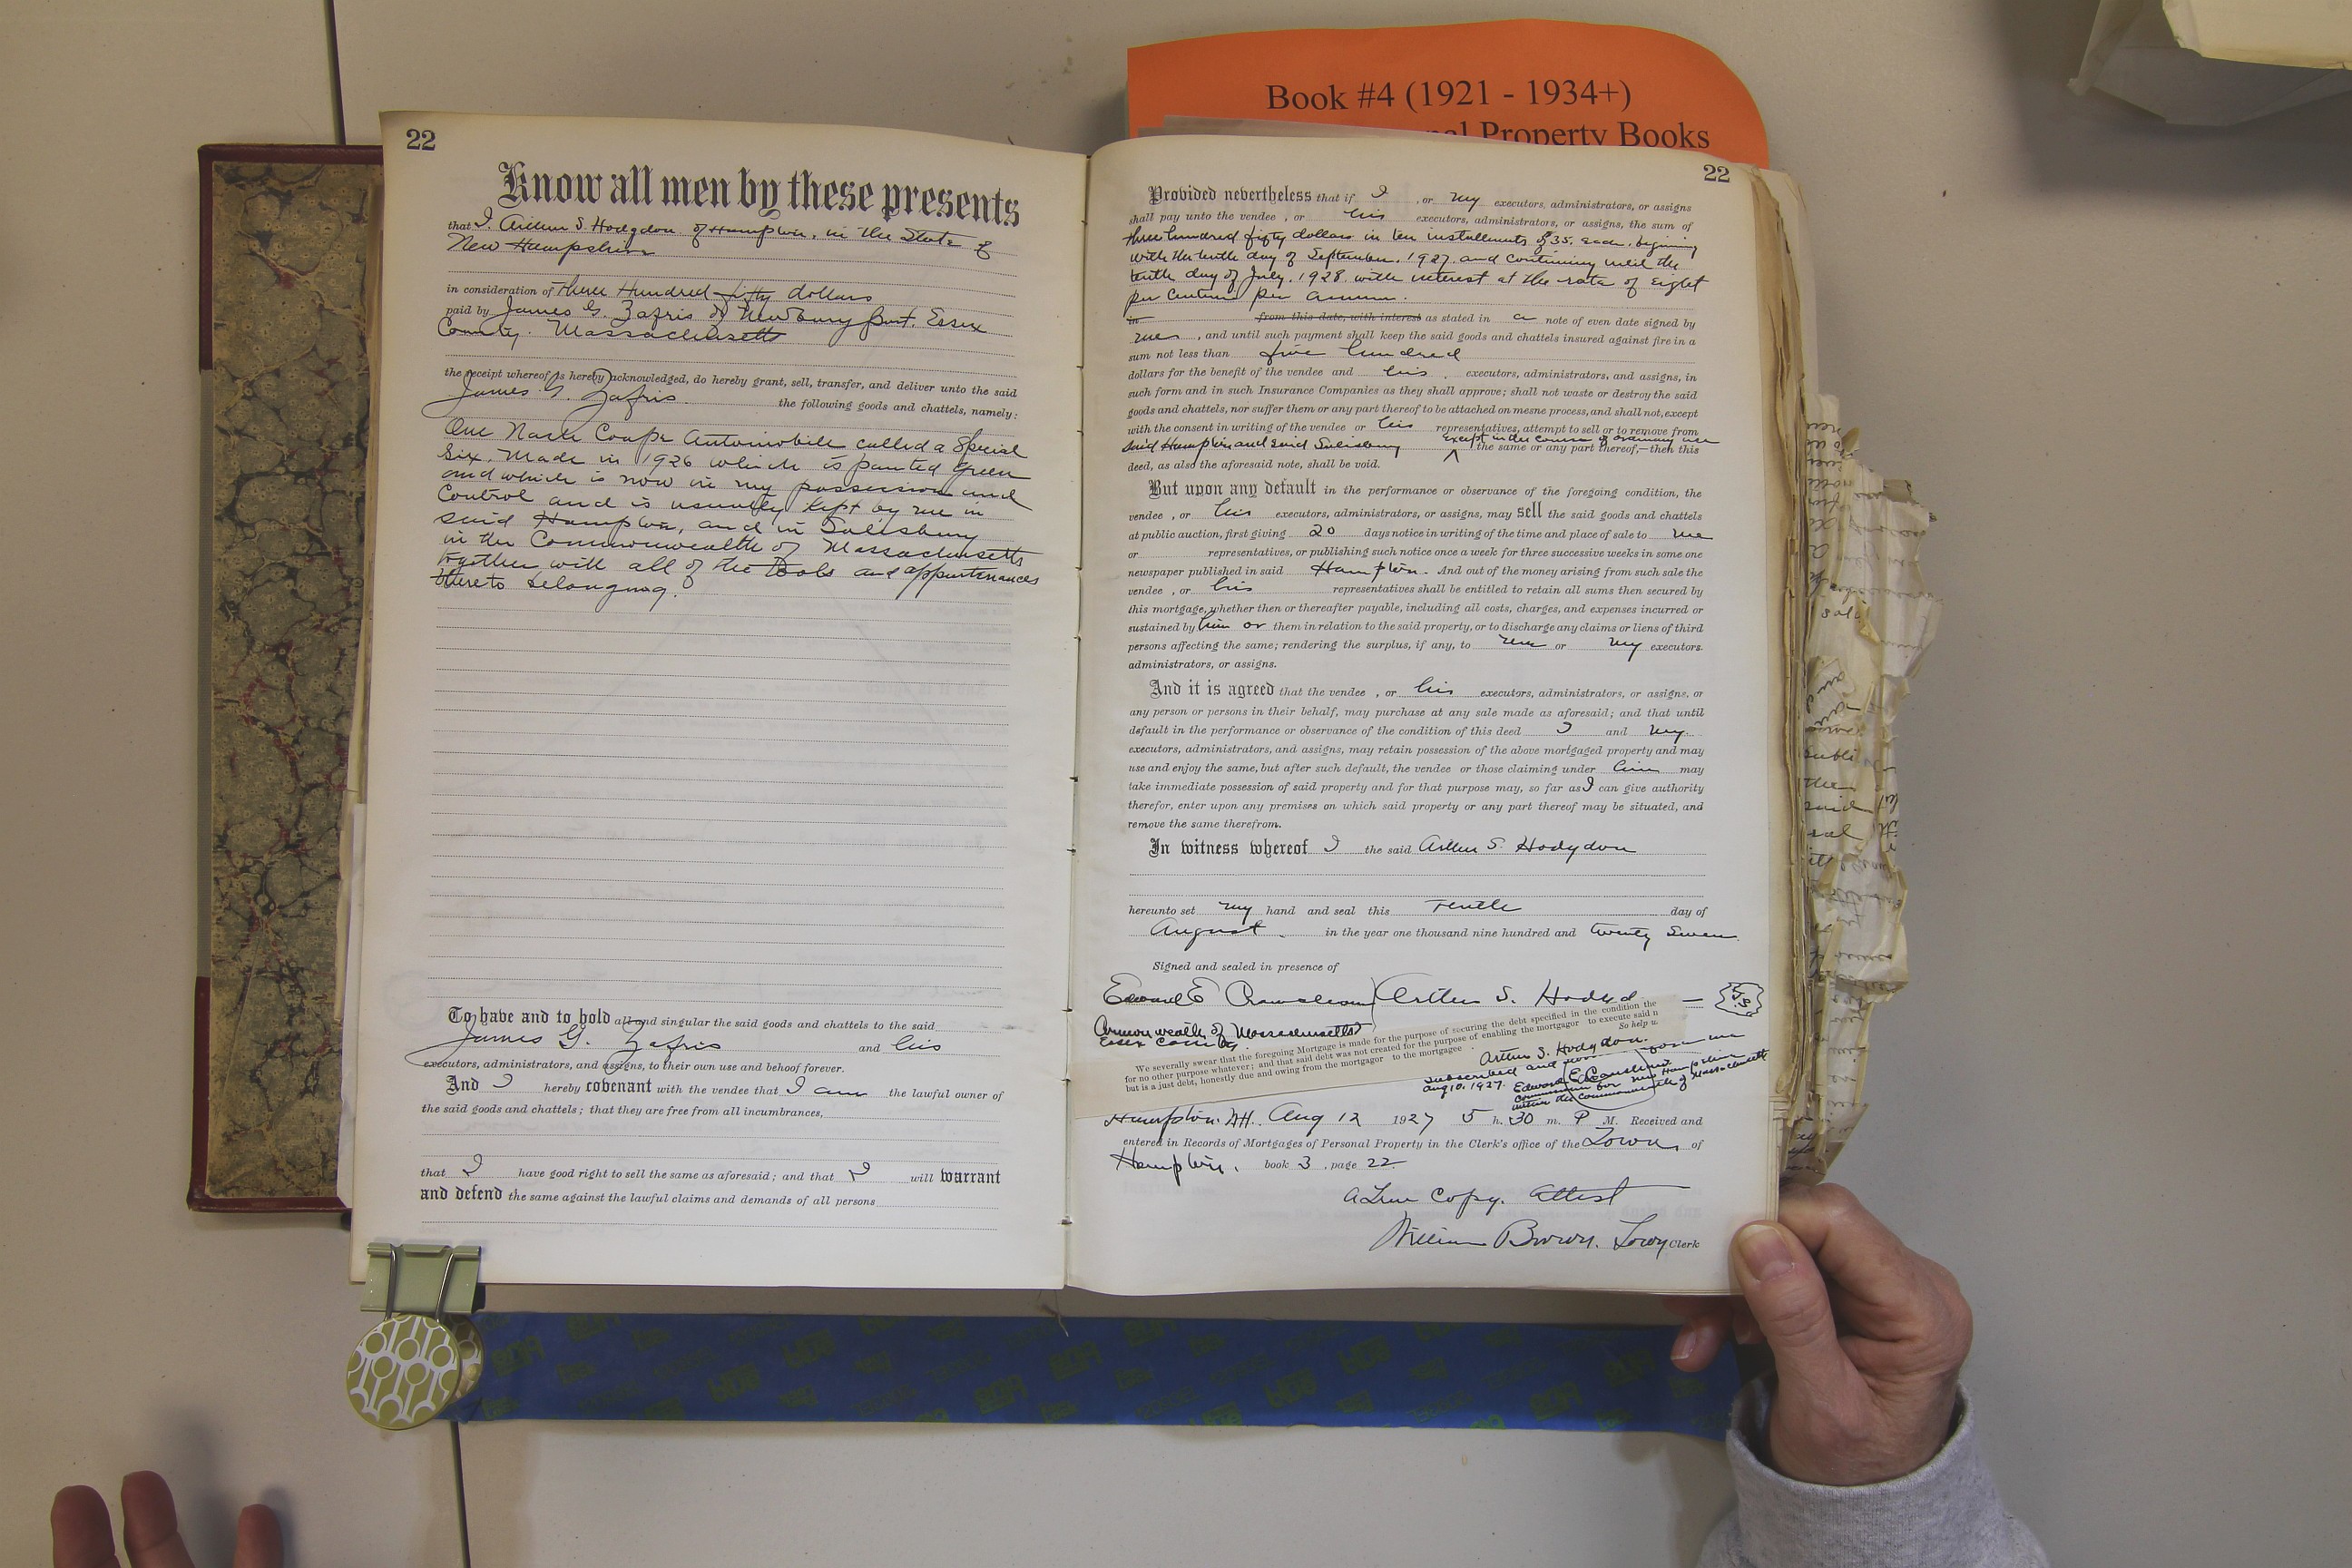 Book #4 (1921 - 1934+)
Property Books
22
Know all men by these presents
that I. Arthur S. Hodgdon of Hampton, in the State of
New Hampshire
in consideration of Three Hundred fifty dollars
paid by James G. Zafris of Newburyport. Essex
County. Massachusetts
the receipt whereof is hereby acknowledged, do hereby grant, sell, transfer, and deliver unto the said
James G. Zafris. the following goods and chattels, namely:
One Nash Coupe Automobile called a Special
Six. Made in 1926 which is painted green
and which is now in my possession and
control and is usually kept by me in
said Hampton, and in Salisbury
in the Commonwealth of Massachusetts
together with all of the Tools and appurtenances
thereto belonging.
To have and to hold all and singular the said goods and chattels to the said
James G. Zafris and his
executors, administrators, and assigns, to their own use and behoof forever.
And I hereby covenant with the vendee that I am the lawful owner of
the said goods and chattels; that they are free from all incumbrances,
that I have good right to sell the same as aforesaid; and that I will warrant
and defend the same against the lawful claims and demands of all persons
22
Provided nevertheless that if I , or my executors, administrators, or assigns
shall pay unto the vendee , or his executors, administrators, or assigns, the sum of
three hundred fifty dollars in ten installments of $35. each. beginning
with the tenth day of September. 1927. and continuing until the
tenth day of July. 1928 with interest at the rate of eight
per centum per annum.
in from this date, with interest as stated in a note of even date signed by
me , and until such payment shall keep the said goods and chattels insured against fire in a
sum not less than five hundred
dollars for the benefit of the vendee and his , executors, administrators, and assigns, in
such form and in such Insurance Companies as they shall approve; shall not waste or destroy the said
goods and chattels, nor suffer them or any part thereof to be attached on mesne process, and shall not, except
with the consent in writing of the vendee or his representatives, attempt to sell or to remove from
said Hampton and said Salisbury except in the course of ordinary use the same or any part thereof,—then this
deed, as also the aforesaid note, shall be void.
But upon any default in the performance or observance of the foregoing condition, the
vendee , or his executors, administrators, or assigns, may sell the said goods and chattels
at public auction, first giving 20 days notice in writing of the time and place of sale to me
or representatives, or publishing such notice once a week for three successive weeks in some one
newspaper published in said Hampton. And out of the money arising from such sale the
vendee , or his representatives shall be entitled to retain all sums then secured by
this mortgage, whether then or thereafter payable, including all costs, charges, and expenses incurred or
sustained by him or them in relation to the said property, or to discharge any claims or liens of third
persons affecting the same; rendering the surplus, if any, to me or my executors.
administrators, or assigns.
And it is agreed that the vendee , or his executors, administrators, or assigns, or
any person or persons in their behalf, may purchase at any sale made as aforesaid; and that until
default in the performance or observance of the condition of this deed I and my
executors, administrators, and assigns, may retain possession of the above mortgaged property and may
use and enjoy the same, but after such default, the vendee or those claiming under him may
take immediate possession of said property and for that purpose may, so far as I can give authority
therefor, enter upon any premises on which said property or any part thereof may be situated, and
remove the same therefrom.
In witness whereof I the said Arthur S. Hodgdon
hereunto set my hand and seal this Tenth day of
August. in the year one thousand nine hundred and twenty Seven.
Signed and sealed in presence of
Edward E Arthur S. Hodgd
Commonwealth of Massachusetts
Essex County.
We severally swear that the foregoing Mortgage is made for the purpose of securing the debt specified in the condition the
for no other purpose whatever; and that said debt was not created for the purpose of enabling the mortgagor to execute said
but is a just debt, honestly due and owing from the mortgagor to the mortgagee So help
Arthur S. Hodgdon.
Subscribed and
Aug 10. 1927. Edward E.
Commissioner for New Hampshire
within the Commonwealth of Massachusetts
Hampton. N.H. Aug 12 1927 5 h. 30 m. P M. Received and
entered in Records of Mortgages of Personal Property in the Clerk's office of the Town of
Hampton. book 3 , page 22
A True Copy. Attest
William Brown. Town Clerk